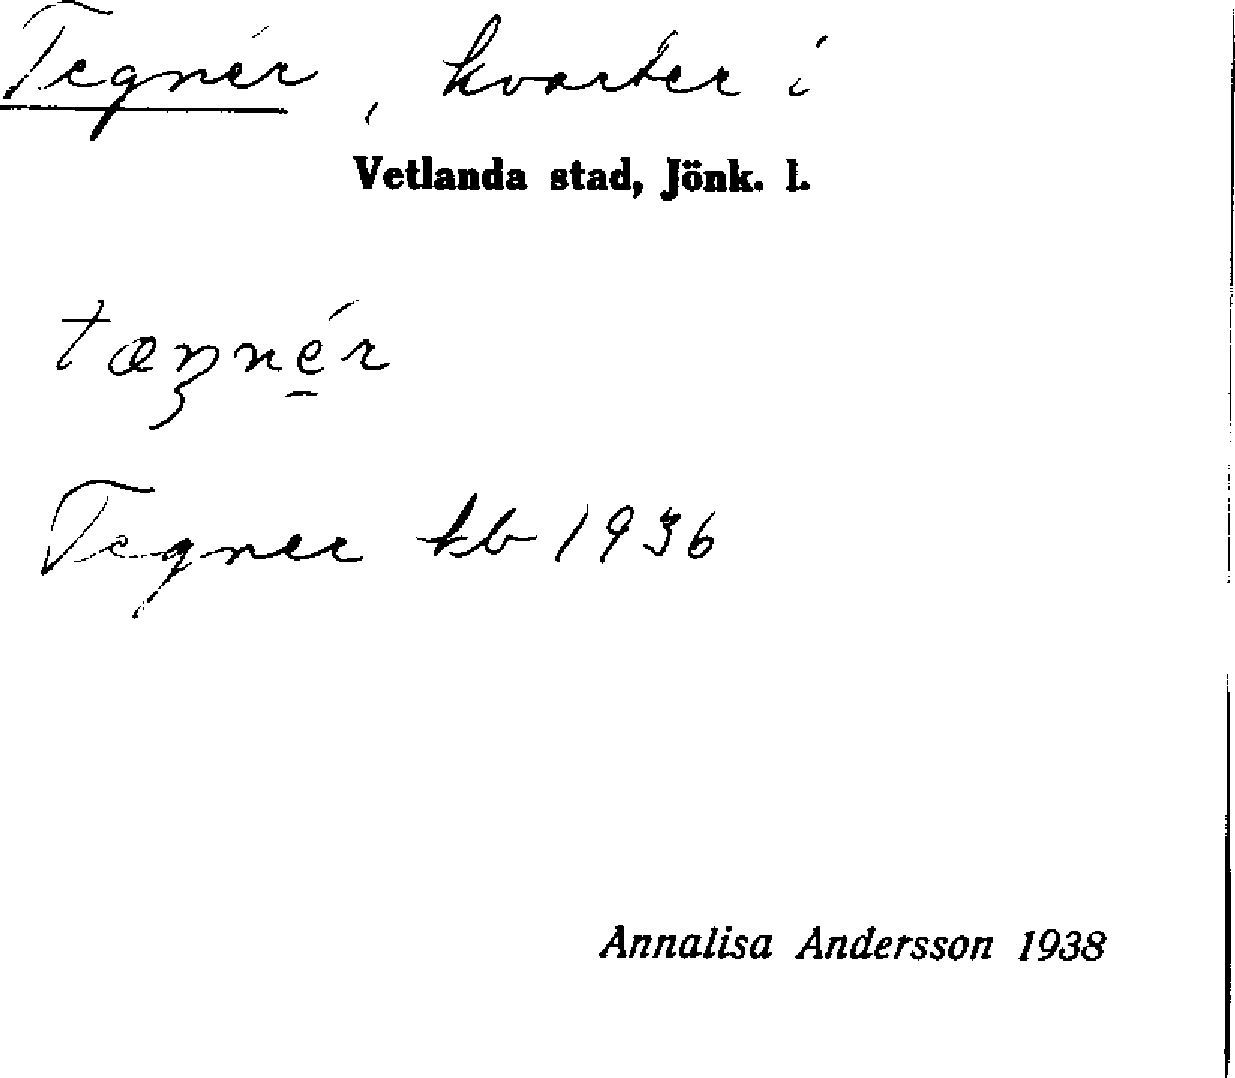 Tegnér, kvarter i
Vetlanda stad, Jönk. l.
tæŋnér
Tegner kb 1936
Annalisa Andersson 1938